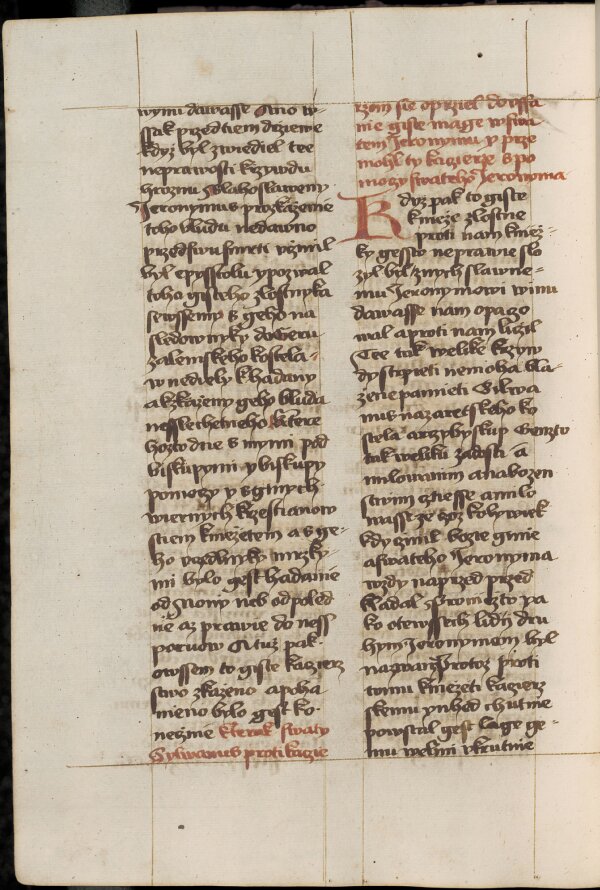 wymi dawasse Ano w-
ssak przed tiem drziewe
kdyz byl zwiediel tee
neprawosti krzywdu
hroznu zblahoslaweny
Jeronymus prozkazenie
toho bludu nedawno
przed swu smrti vczinil
byl epysstolu y pozwal
toho gisteho zlostnyka
sewssemy s geho na
sledownyky do Geru-
zalemskeho kostela
w nedieli k hadany
a k zkazeny geho bluda
nesslechetneho kterc
hozto dne s mymi pod
biskupymi y biskupy
pomoczy y s ginych
wiernych krzestianow
stiem kniezetem a s ge-
ho vczedlnyky mrzky-
mi bylo gest hadanie
od Nony neb od poled
nie az prawie do ness
poruow A tuz pak
owssem to giste kacierz
stwo zkazeno a poha
nieno bylo gest ko-
necznie kterak swaty
Sylwanus proti kacie
rzom sie oprziel doussa
nie giste mage w swa
tem Jeronymu y prze
mohl ty kacierze s po
moczy swateho Jeronyma
Kdyz pak to giste
knieze zlostne
proti nam kniez-
ky gessto neprawie slo
zyl byl z nych slawne-
mu Jeronymowi winu
dawasse nam opago
wal a proti nam luczil
Tee tak welike krzyw
dy strpieti nemoha bla-
zene pamieti Silwa
nus nazaretskeho ko
stela arzybyskup Genzto
tak weliku zadosti a
milowanim a nabozen
stwim cztiesse a milo
wasse ze coz kolywiek
kdy czinil bozie gmie
a swateho Jeronyma
wzdy naprzed przed
kladal Proniezto ya
ko otewssech lidij dru
hym Jeronymem byl
nazwan Protoz proti
tomu kniezeti kacierz
skemu ynhed chutnie
powstal gest lage ge-
mu welmi vkrutnie